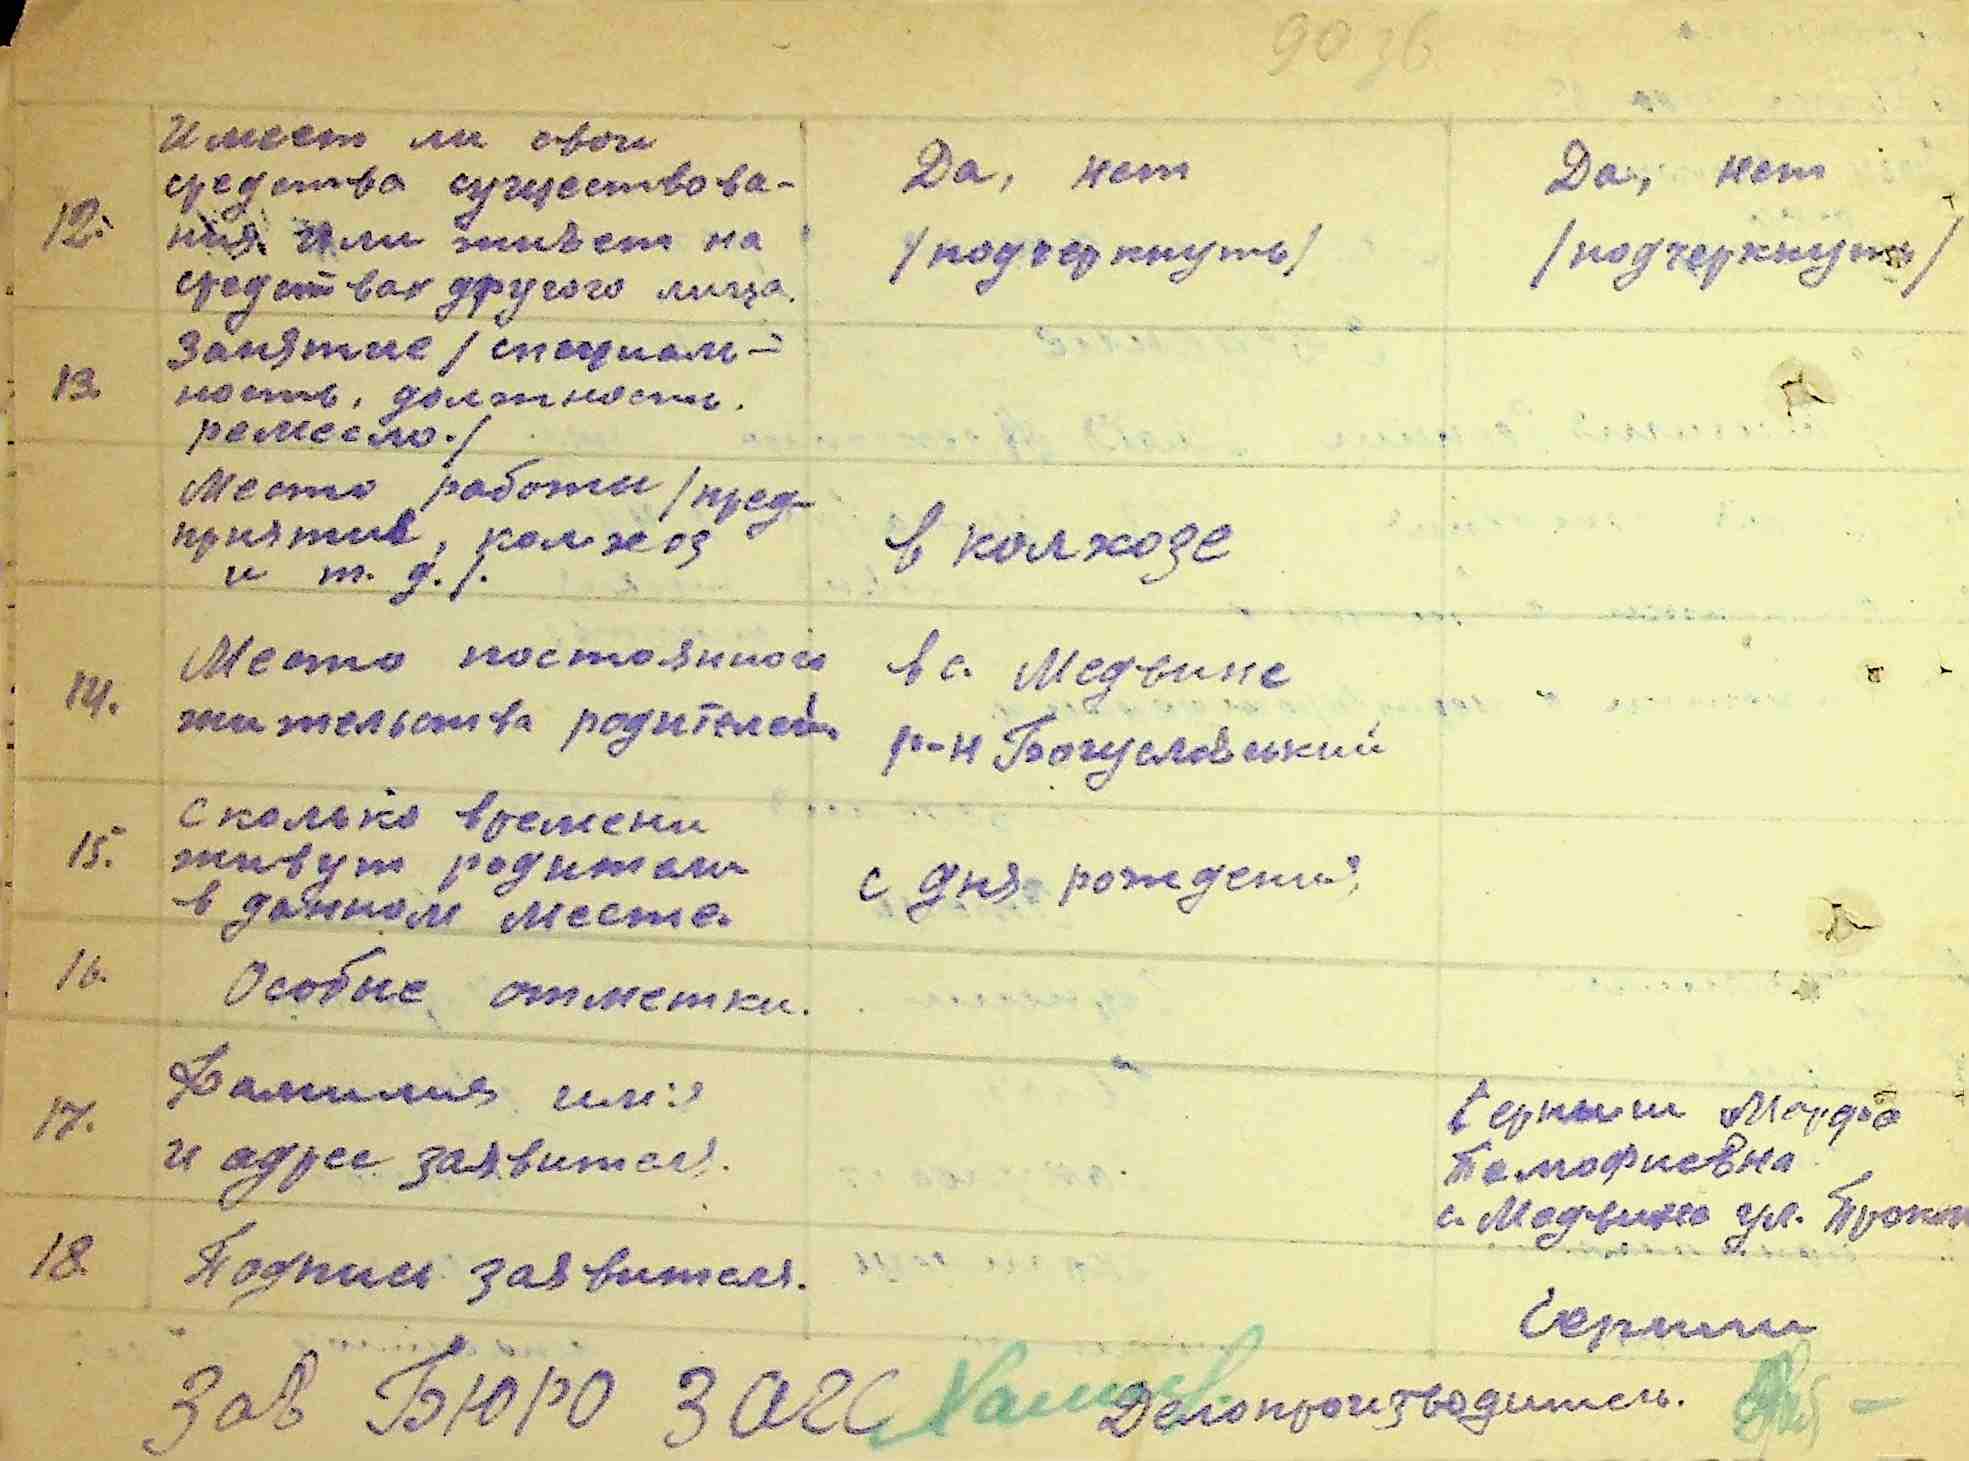 90 зв
12.
Имеет ли свои
средства существова-
ния или живет на
средствах другого лица.
Да, нет
/подчеркнуть/
Да, нет
/подчеркнуть/
13.
Занятие /специаль-
ность, должность.
ремесло./
Место работы /пред-
приятие, колхоз
и т. д./.
в колхозе
14.
Место постоянного
жительства родителей.
в с. Медвине
р-н Богуславський
15.
Сколько времени
живут родители
в данном месте.
с дня рождения
16.
Особые отметки.
17.
Фамилия имя
и адрес заявителя.
Марфа
с. Медвине ул.
18.
Подпись заявителя.
Зав Бюро ЗАГС
Делопроизводитель.